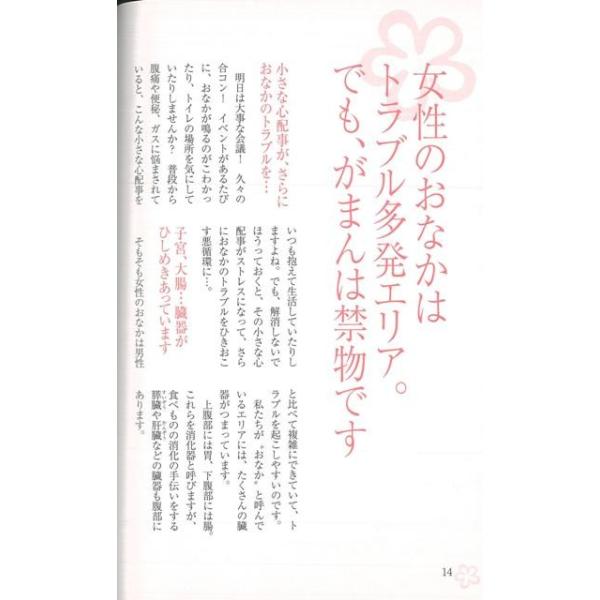 女性のおなかは
トラブル多発エリア。
でも、がまんは禁物です
小さな心配事が、さらに
おなかのトラブルを…
明日は大事な会議！　久々の
合コン！　イベントがあるたび
に、おなかが鳴るのがこわかっ
たり、トイレの場所を気にして
いたりしませんか？　普段から
腹痛や便秘、ガスに悩まされて
いると、こんな小さな心配事を
いつも抱えて生活していたりし
ますよね。でも、解消しないで
ほうっておくと、その小さな心
配事がストレスになって、さら
におなかのトラブルをひきおこ
す悪循環に…。
子宮、大腸…臓器が
ひしめきあっています
そもそも女性のおなかは男性
と比べて複雑にできていて、ト
ラブルを起こしやすいのです。
私たちが〝おなか〟と呼んで
いるエリアには、たくさんの臓
器がつまっています。
上腹部には胃、下腹部には腸。
これらを消化器と呼びますが、
食べものの消化の手伝いをする
膵臓や肝臓などの臓器も腹部に
あります。
14